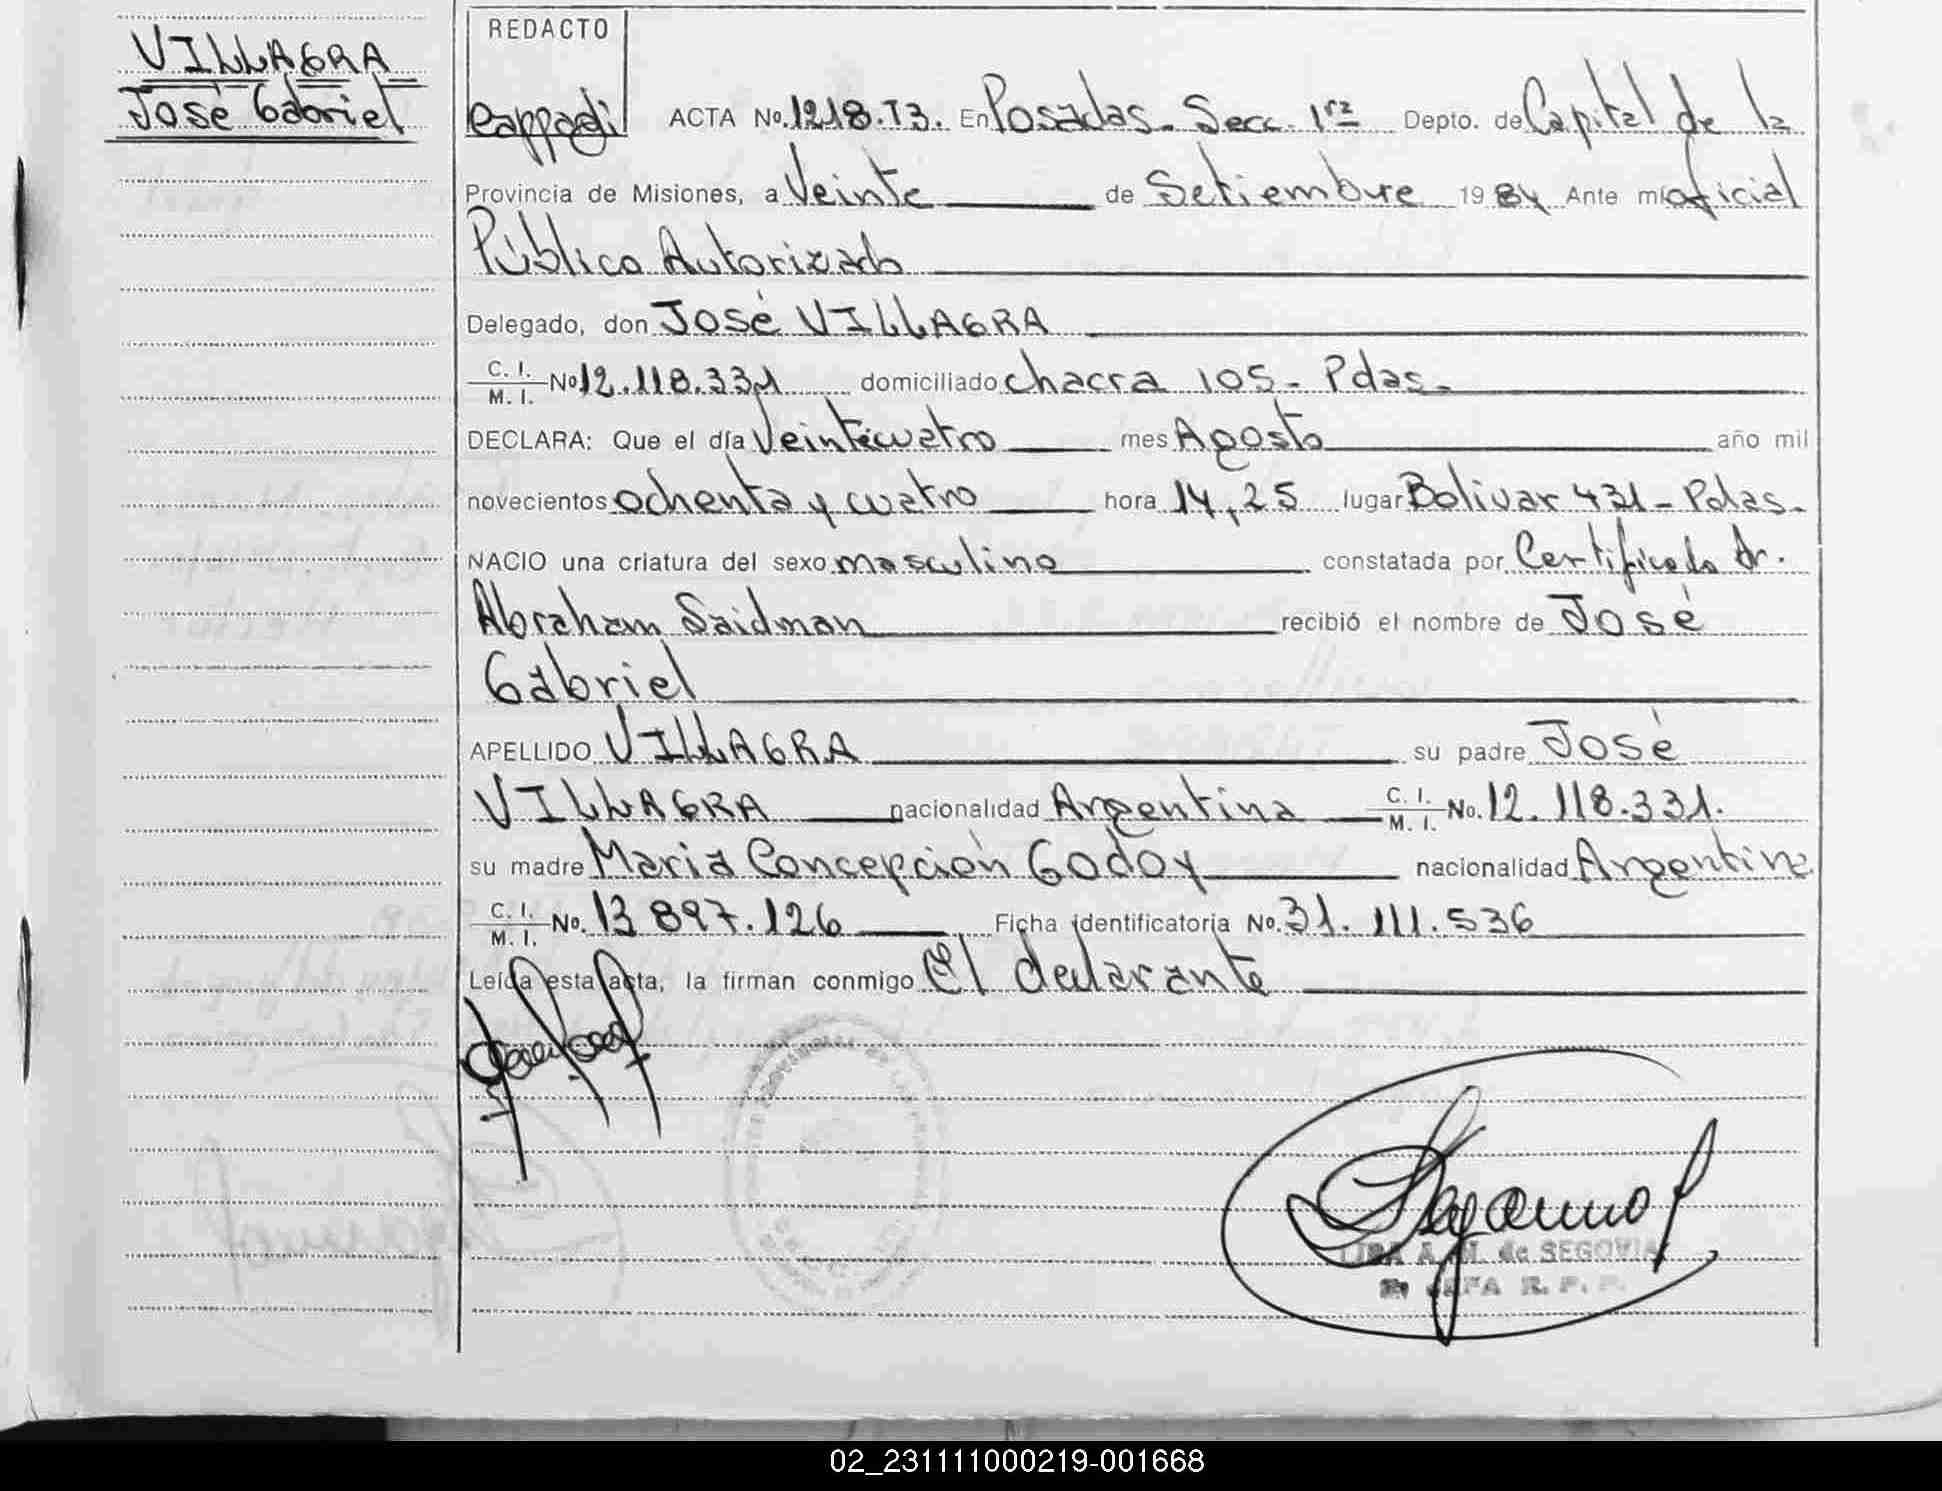 VILLAGRA
José Gabriel
REDACTO
Cappadi
ACTA No. 1218.T3. En Posadas - Secc. 1ra Depto. de Capital de la
Provincia de Misiones, a Veinte de Setiembre 1984 Ante mí oficial
Público Autorizado
Delegado, don José VILLAGRA
C. I. / M. I. No 12.118.331 domiciliado chacra 105 - Pdas -
DECLARA: Que el día Veinticuatro mes Agosto año mil
novecientos ochenta y cuatro hora 14,25 lugar Bolivar 431 - Pdas -
NACIO una criatura del sexo masculino constatada por Certificado dr.
Abraham Saidman recibió el nombre de José
Gabriel
APELLIDO VILLAGRA su padre José
VILLAGRA nacionalidad Argentina C. I. / M. I. No. 12.118.331.
su madre Maria Concepción Godoy nacionalidad Argentina
C. I. / M. I. No. 13 897.126 Ficha identificatoria No. 31.111.536
Leída esta acta, la firman conmigo El declarante
A. M. de SEGOVIA
JEFA R. P. P.
02_231111000219-001668